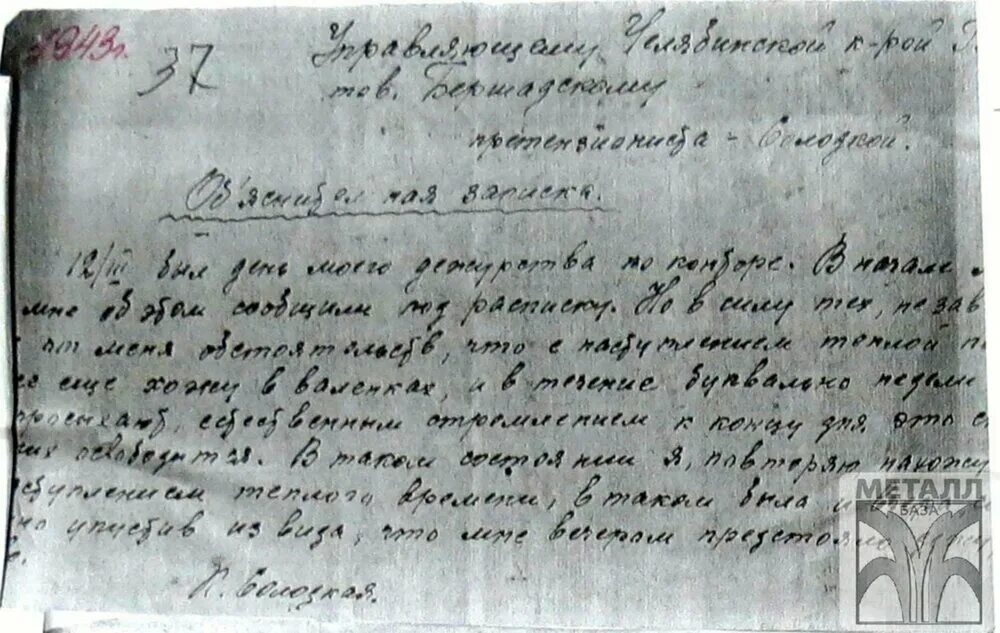 1943г.
37
Управляющему Челябинской к-рой
тов. Бершадскому
претензиониста - Солодкой.
Об'яснительная записка.
12/III был день моего дежурства по конторе. В начале
мне об этом сообщили под расписку. Но в силу тех, не зав
от меня обстоятельств, что с наступлением теплой
еще хожу в валенках, и в течение буквально недели
просыхают, естественным стремлением к концу дня это
них освободится. В таком состоянии я, повторяю нахожу
ступлением теплого времени, в таком была и
упустив из вида, что мне вечером предстояло
Солодкая.
МЕТАЛЛ
БАЗА